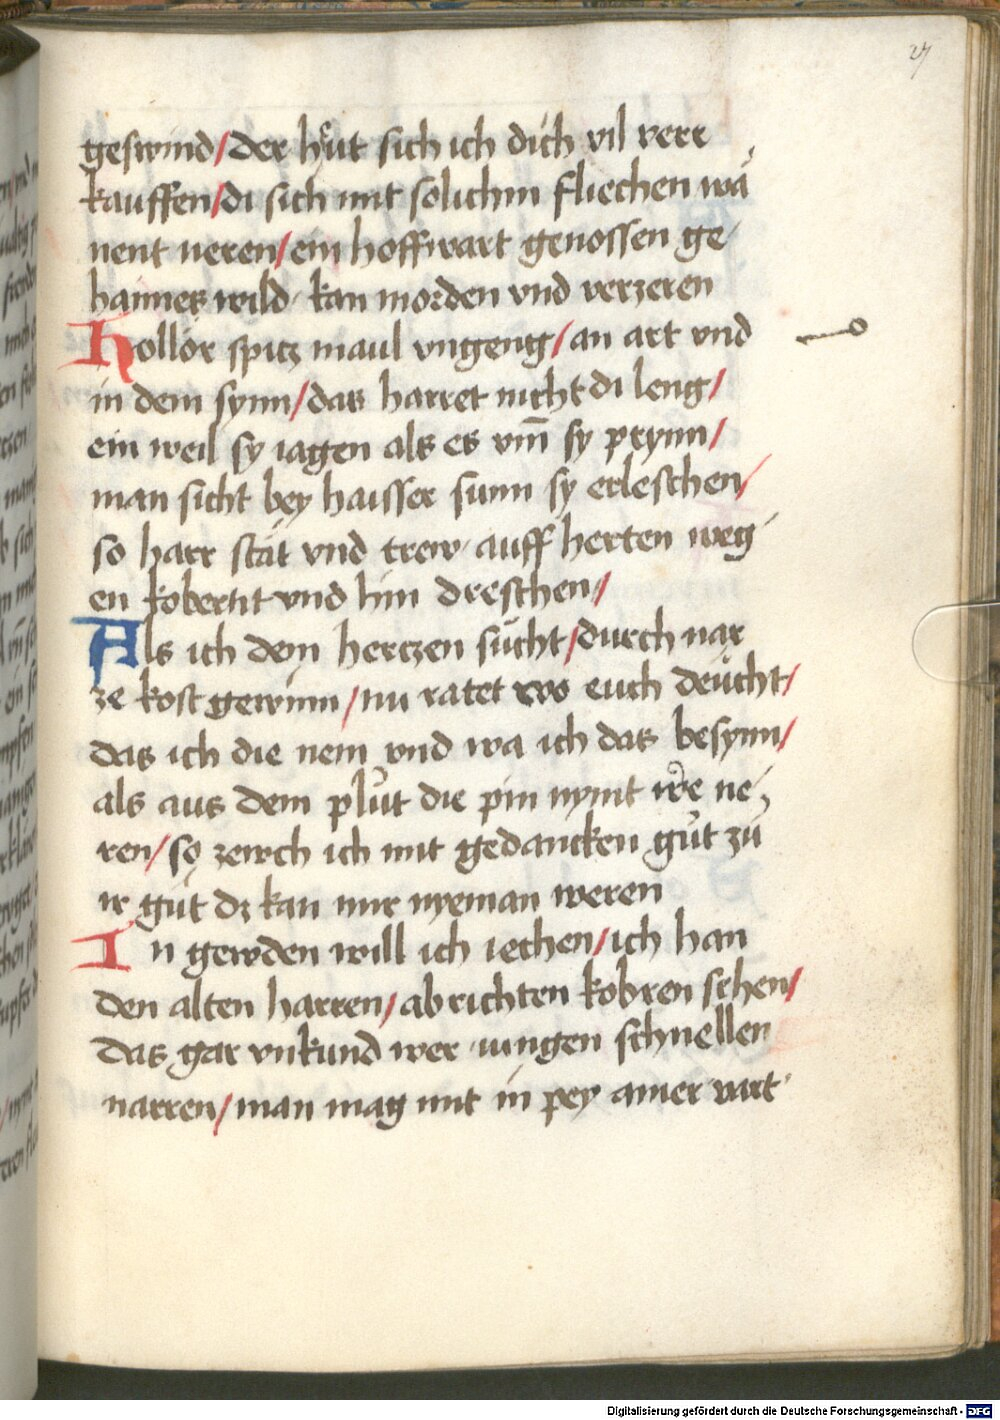 27
geswind/der hut sich ich dich vil verr
kauffen/di sich mit solichm fliechen wä
nent neren/ein hoffwart genossen ge
haimes wild kan morden vnd verzeren
Hollör spitz maul vngeng/an art vnd
in dem synn/das harret nicht di leng/
ein weil sy iagen als es vm̄ sy prynn/
man sicht bey haisser sunn sy erleschen/
so harr stät vnd trew auff herten weg
en kobertit vnd hin dreschen/
Als ich dem herczen sücht/durch nar
ze kost gewinn/nu ratet wo euch deücht/
das ich die nem vnd wa ich das besynn/
als aus dem plůt die pin nymt ir̊e ne
ren/so zeuch ich mit gedancken gůt zů
ir güt dz kan mir nyeman weren
In gewden will ich iechen/ich han
den alten harren/abrichten kobren sehen/
das gar vnkund wer iungen schnellen
narren/man mag mit in pey ainer vart
Digitalisierung gefördert durch die Deutsche Forschungsgemeinschaft - DFG